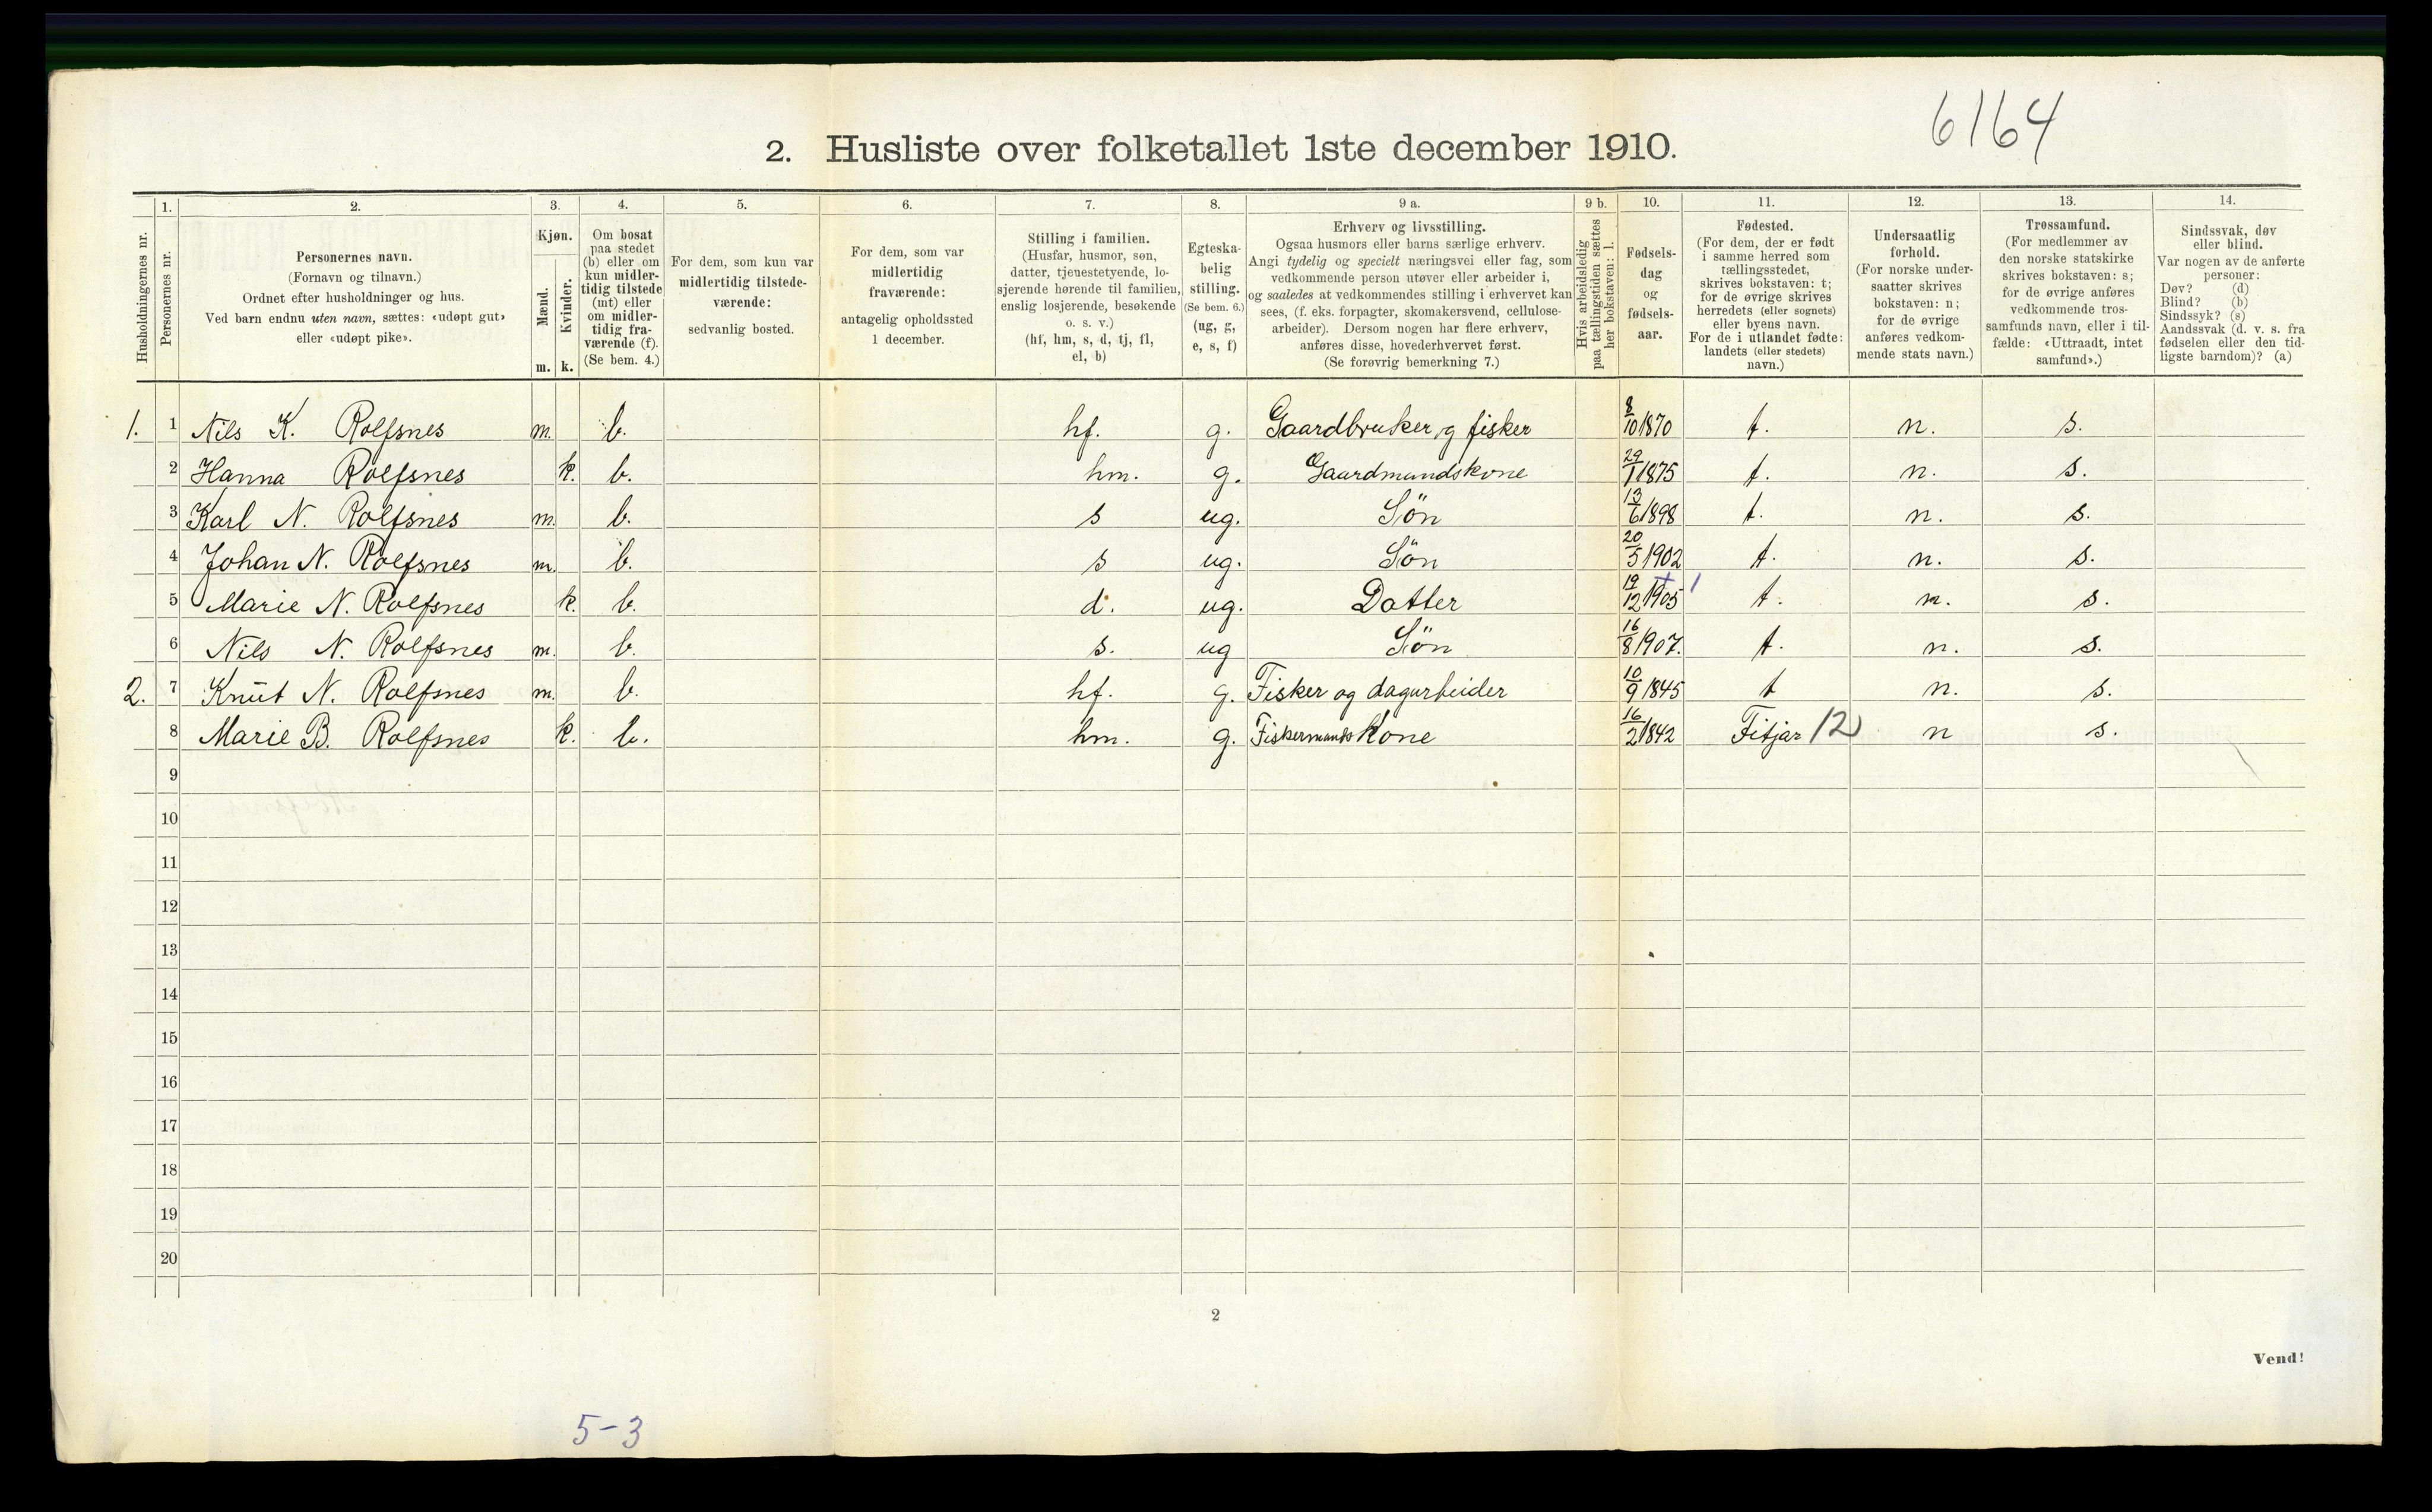 6164
2. Husliste over folketallet 1ste december 1910.
Husholdningernes nr.
1.
Personernes nr.
2.
Personernes navn.
(Fornavn og tilnavn.)
Ordnet efter husholdninger og hus.
Ved barn endnu uten navn, sættes: «udøpt gut»
eller «udøpt pike».
3.
Kjøn.
Mænd.
Kvinder.
m. k.
4.
Om bosat
paa stedet
(b) eller om
kun midler-
tidig tilstede
(mt) eller
om midler-
tidig fra-
værende (f).
(Se bem. 4.)
5.
For dem, som kun var
midlertidig tilstede-
værende:
sedvanlig bosted.
6.
For dem, som var
midlertidig
fraværende:
antagelig opholdssted
1 december.
7.
Stilling i familien.
(Husfar, husmor, søn,
datter, tjenestetyende, lo-
sjerende hørende til familien,
enslig losjerende, besøkende
o. s. v.)
(hf, hm, s, d, tj, fl,
el, b)
8.
Egteska-
belig
stilling.
(Se bem. 6.)
(ug, g,
e, s, f)
9 a.
Erhverv og livsstilling.
Ogsaa husmors eller barns særlige erhverv.
Angi tydelig og specielt næringsvei eller fag, som
vedkommende person utøver eller arbeider i,
og saaledes at vedkommendes stilling i erhvervet kan
sees, (f. eks. forpagter, skomakersvend, cellulose-
arbeider). Dersom nogen har flere erhverv,
anføres disse, hovederhvervet først.
(Se forøvrig bemerkning 7.)
9 b.
Hvis arbeidsledig
paa tællingstiden sættes
her bokstaven: l.
10.
Fødsels-
dag
og
fødsels-
aar.
11.
Fødested.
(For dem, der er født
i samme herred som
tællingsstedet,
skrives bokstaven: t;
for de øvrige skrives
herredets (eller sognets)
eller byens navn.
For de i utlandet fødte:
landets (eller stedets)
navn.)
12.
Undersaatlig
forhold.
(For norske under-
saatter skrives
bokstaven: n;
for de øvrige
anføres vedkom-
mende stats navn.)
13.
Trossamfund.
(For medlemmer av
den norske statskirke
skrives bokstaven: s;
for de øvrige anføres
vedkommende tros-
samfunds navn, eller i til-
fælde: «Uttraadt, intet
samfund».)
14.
Sindssvak, døv
eller blind.
Var nogen av de anførte
personer:
Døv? (d)
Blind? (b)
Sindssyk? (s)
Aandssvak (d. v. s. fra
fødselen eller den tid-
ligste barndom)? (a)
1. 1 Nils K. Rolfsnes m. b. hf. g. Gaardbruker og fisker 8/10 1870 t. n. s.
2 Hanna Rolfsnes k. b. hm. g. Gaardmandskone 29/1 1875 t. n. s.
3 Karl N. Rolfsnes m. b. s ug. Sön 13/6 1898 t. n. s.
4 Johan N. Rolfsnes m. b. s ug. Sön 20/5 1902 t. n. s.
5 Marie N. Rolfsnes k. b. d. ug. Datter 19/12 1905 + 1 t. n. s.
6 Nils N. Rolfsnes m. b. s. ug Sön 16/8 1907. t. n. s.
2. 7 Knut N. Rolfsnes m. b. hf. g. Fisker og dagarbeider 10/9 1845 t n. s.
8 Marie B. Rolfsnes k. b. hm. g. Fiskermands Kone 16/2 1842 Fitjar 12 n s.
9
10
11
12
13
14
15
16
17
18
19
20
2
Vend!
5-3